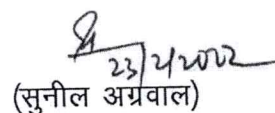 23/2/2022
(सुनील अग्रवाल)